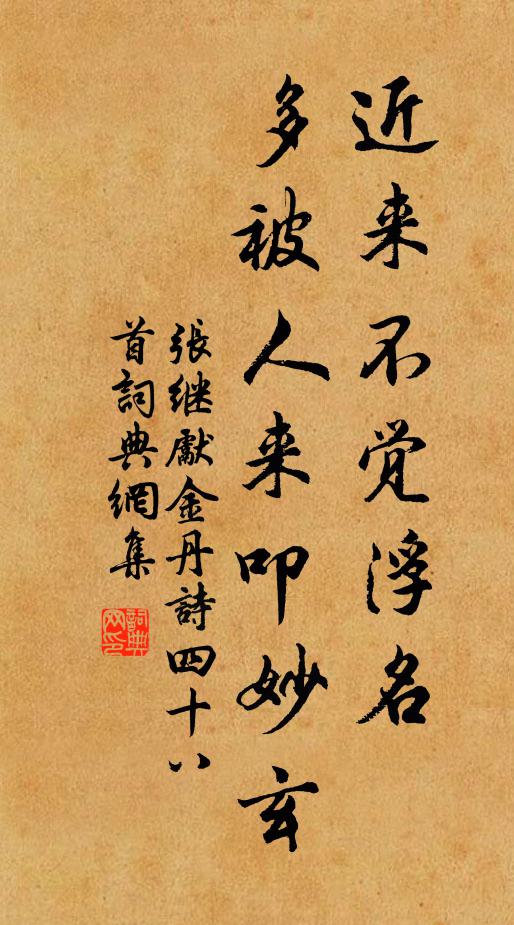 近来不觉浮名
多被人来叩妙玄
張继獻金丹詩四十八
首詞典網集
詞典
网印